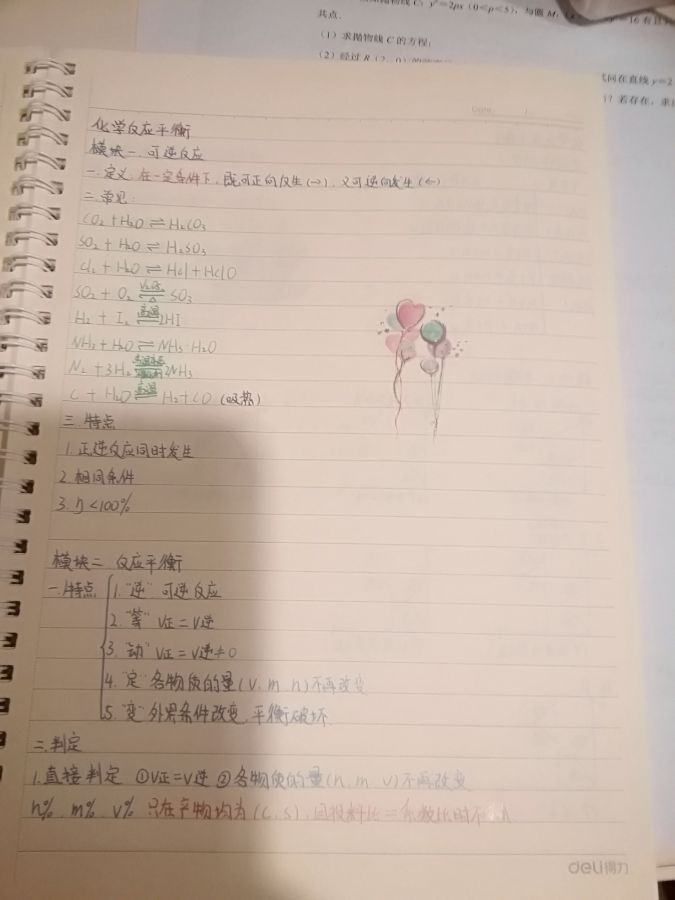 物线 C: y²=2px (0<p<5), 与圆 M:
=16 有且
共点.
(1) 求抛物线 C 的方程;
(2) 经过 R (2, 0)
问在直线 y=2
? 若存在, 求
Date
化学反应平衡
模块一. 可逆反应
一. 定义. 在一定条件下, 既可正向反生(→), 又可逆向发生(←)
二. 常见:
CO₂+H₂O ⇌ H₂CO₃
SO₂ + H₂O ⇌ H₂SO₃
Cl₂ + H₂O ⇌ HCl + HClO
SO₂ + O₂ V₂O₅ ⇌ △ SO₃
H₂ + I₂ 高温 ⇌ 2HI
NH₃+H₂O ⇌ NH₃·H₂O
N₂ +3H₂ ⇌ 2NH₃
C + H₂O 高温 ⇌ H₂+CO (吸热)
三. 特点
1. 正逆反应同时发生
2. 相同条件
3. η<100%
模块二. 反应平衡
一. 特点 1. "逆" 可逆反应
2. "等" V正=V逆
3. "动" V正=V逆≠0
4. "定" 各物质的量(V. m. n)不再改变
5. "变" 外界条件改变, 平衡破坏.
二. 判定
1. 直接判定 ①V正=V逆 ②各物质的量(n. m. v)不再改变
n%. m%. V% 只在产物均为(C. S), 且投料比=系数比时不
deli得力